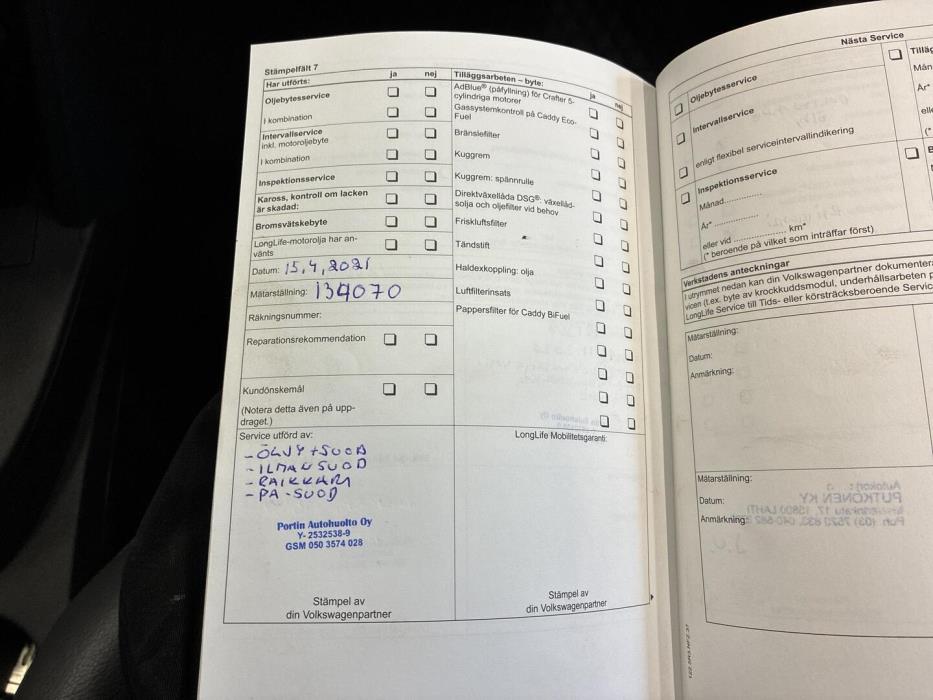 Stämpelfält 7
Har utförts: ja nej
Oljebytesservice
I kombination
Intervallservice
inkl. motoroljebyte
I kombination
Inspektionsservice
Kaross, kontroll om lacken
är skadad:
Bromsvätskebyte
LongLife-motorolja har an-
vänts
Datum: 15.4.2021
Mätarställning: 134070
Räkningsnummer:
Reparationsrekommendation
Kundönskemål
(Notera detta även på upp-
draget.)
Tilläggsarbeten – byte: ja nej
AdBlue® (påfyllning) för Crafter 5-
cylindriga motorer
Gassystemkontroll på Caddy Eco-
Fuel
Bränslefilter
Kuggrem
Kuggrem: spännrulle
Direktväxellåda DSG®: växellåd-
solja och oljefilter vid behov
Friskluftsfilter
Tändstift
Haldexkoppling: olja
Luftfilterinsats
Pappersfilter för Caddy BiFuel
Service utförd av:
- ÖLJY + SUOD
- ILMAN SUOD
- RAIKKARI
- PA - SUOD
Portin Autohuolto Oy
Y- 2532538-9
GSM 050 3574 028
Stämpel av
din Volkswagenpartner
LongLife Mobilitetsgaranti:
Stämpel av
din Volkswagenpartner
Nästa Service
Oljebytesservice
Intervallservice
enligt flexibel serviceintervallindikering
Inspektionsservice
Månad..............
År* ...............
eller vid .................. km*
(* beroende på vilket som inträffar först)
Verkstadens anteckningar
I utrymmet nedan kan din Volkswagenpartner
vicen (t.ex. byte av krockkuddsmodul, underhållsarbeten
LongLife Service till Tids- eller körsträcksberoende
Mätarställning:
Datum:
Anmärkning:
Mätarställning:
Datum:
Anmärkning: